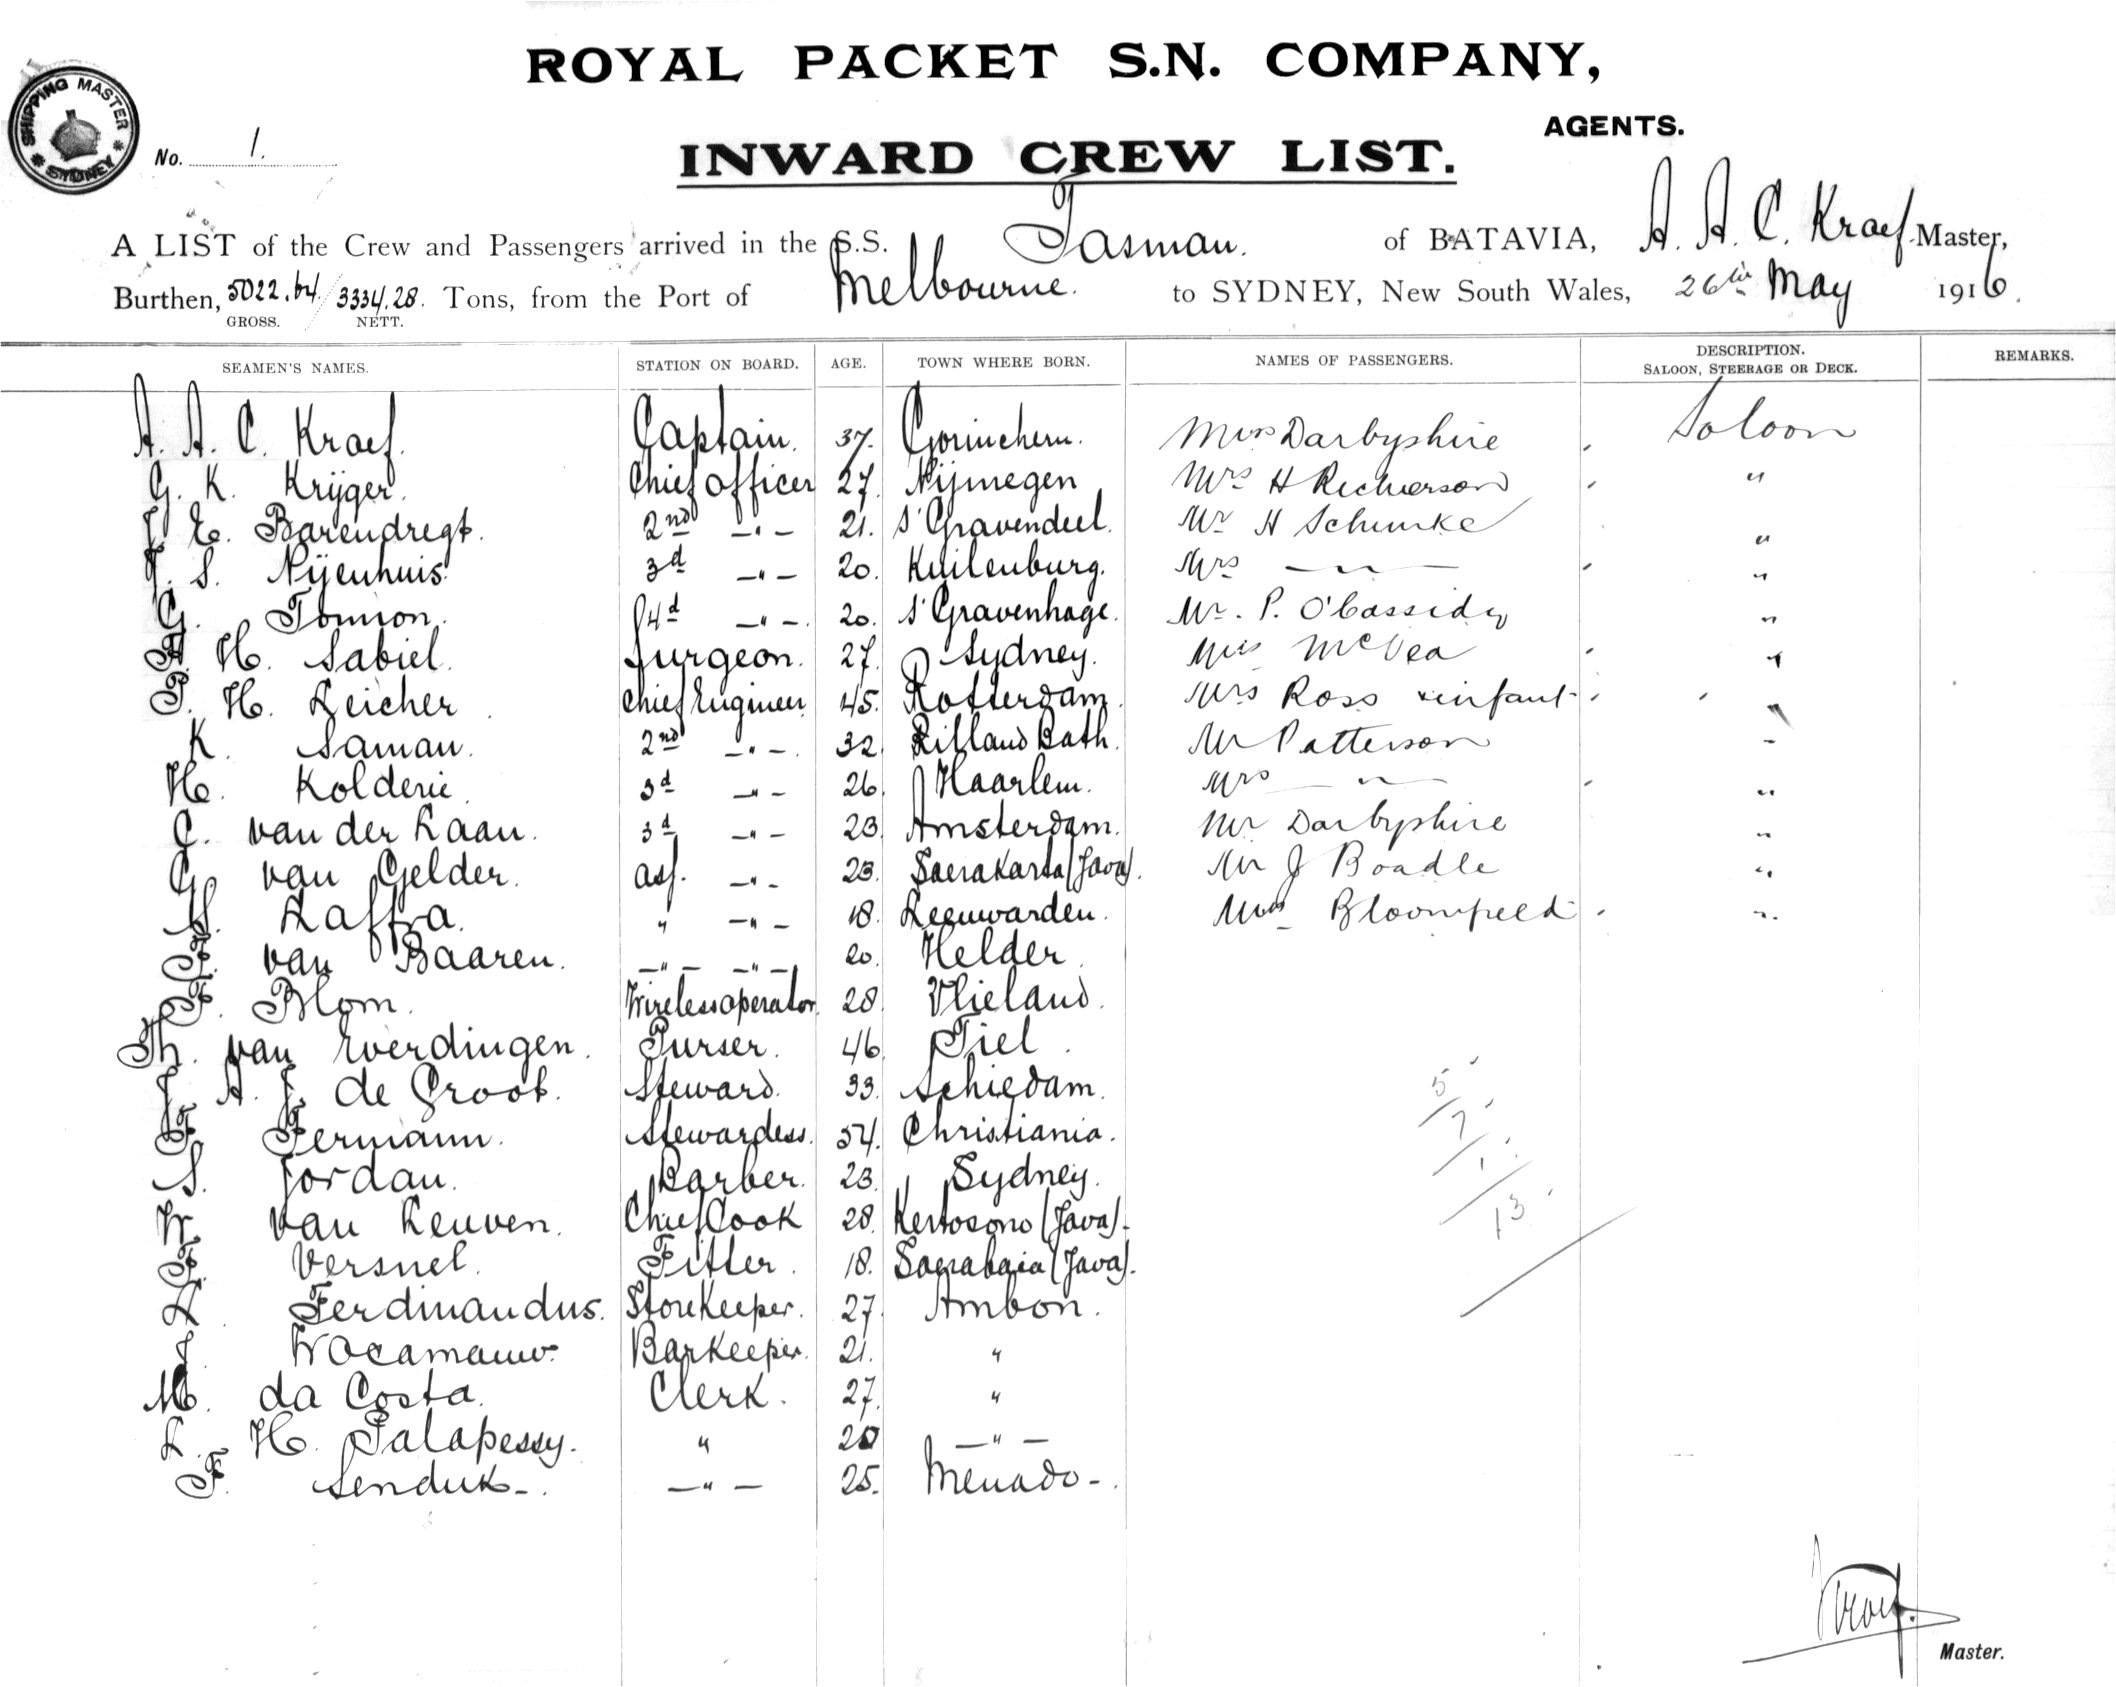 ROYAL PACKET S.N. COMPANY,
AGENTS.
SHIPPING MASTER SYDNEY
No. 1.
INWARD CREW LIST.
A LIST of the Crew and Passengers arrived in the S.S. Tasman. of BATAVIA, A. A. C. Kraef. Master,
Burthen, 5022.64. / 3334.28. Tons, from the Port of Melbourne. to SYDNEY, New South Wales, 26th May 1916.
GROSS. NETT.
SEAMEN'S NAMES. STATION ON BOARD. AGE. TOWN WHERE BORN. NAMES OF PASSENGERS. DESCRIPTION. SALOON, STEERAGE OR DECK. REMARKS.
A. A. C. Kraef. Captain. 37. Gorinchem. Darbyshire Saloon
G. K. Krÿger. Chief officer 27. Nijmegen Mrs H Richerson "
J. E. Barendregt. 2nd -"- 21. s'Gravendeel. Mr H Schunke "
J. S. Nÿenhuis. 3d -"- 20. Kuilenburg. Mrs -"- "
G. Tomson. 4d -"- 20. s'Gravenhage. Mr. P. O'Cassidy "
A. H. Sabiel. Surgeon. 27. Sydney. Miss McVea "
P. H. Leicher. Chief Engineer 45. Rotterdam. Mrs Ross & infant "
K. Saman. 2nd -"-. 32 Rilland Bath. Mr Patterson "
H. Kolderie. 3d -"- 26. Haarlem. Mrs -"- "
C. van der Laan. 3d -"- 23. Amsterdam. Mr Darbyshire "
G. van Gelder. ass. -"- 23. Soerakarta (Java). Mr J Boadle "
Laffra. " -"- 18. Leeuwarden. Bloomfield "
F. van Baaren. -"- -"- 20. Helder.
F. Blom. Wireless operator. 28. Vlieland.
Th. van Everdingen. Purser. 46. Tiel.
J. A. J. de Groot. Steward. 33. Schiedam. 5
F. Fermann. Stewardess. 54. Christiania. 7
S. Jordan. Barber. 23. Sydney. 1
W. van Leuven. Chief Cook 28. Kertosono (Java). 13
F. Versnel. Fitter. 18. Soerabaia (Java).
L. Ferdinandus. Storekeeper. 27. Ambon.
J. Wocamauw. Barkeeper. 21. "
M. da Costa. Clerk. 27. "
L. H. Palapessy. " 20 -"-
F. Senduk-. -"- 25. Menado-.
Kraef.
Master.